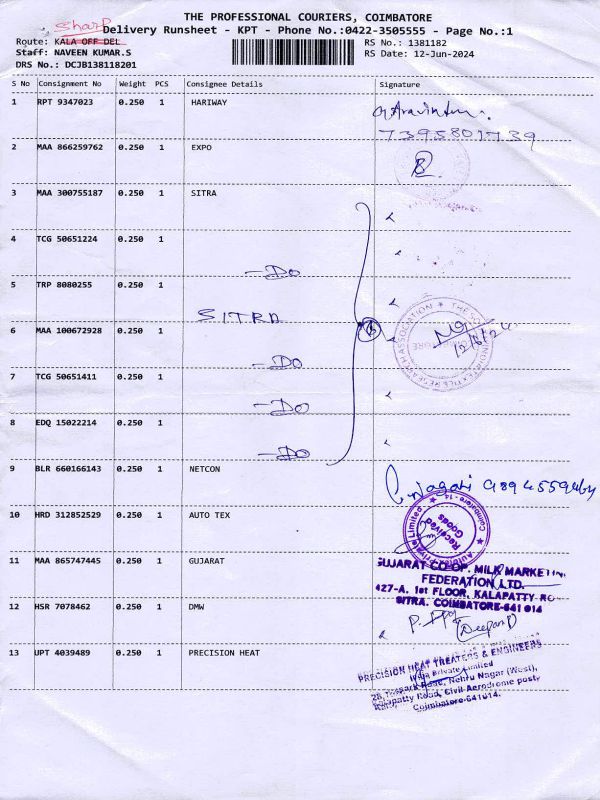 THE PROFESSIONAL COURIERS, COIMBATORE
Sharp
Delivery Runsheet - KPT - Phone No.:0422-3505555 - Page No.:1
Route: KALA OFF DEL
RS No.: 1381182
Staff: NAVEEN KUMAR.S
RS Date: 12-Jun-2024
DRS No.: DCJB138118201
S No Consignment No Weight PCS Consignee Details Signature
1 RPT 9347023 0.250 1 HARIWAY
7395801739
2 MAA 866259762 0.250 1 EXPO
3 MAA 300755187 0.250 1 SITRA
4 TCG 50651224 0.250 1
-DO
5 TRP 8080255 0.250 1
SITRA
6 MAA 100672928 0.250 1
6
12/6/24
-DO
7 TCG 50651411 0.250 1
-DO
8 EDQ 15022214 0.250 1
-DO
9 BLR 660166143 0.250 1 NETCON
10 HRD 312852529 0.250 1 AUTO TEX
Private Limited
Coimbatore - 14
Received
Goods
11 MAA 865747445 0.250 1 GUJARAT
GUJARAT CO-OP. MILK MARKETING
FEDERATION LTD.
427-A, 1st FLOOR, KALAPATTY RO
SITRA. COIMBATORE-641 014
12 HSR 7078462 0.250 1 DMW
(Deepan P)
13 UPT 4039489 0.250 1 PRECISION HEAT
PRECISION HEAT TREATERS & ENGINEERS
India Private Limited
Road, Nehru Nagar (West),
Kalapatty Road, Civil Aerodrome post,
Coimbatore-641014.